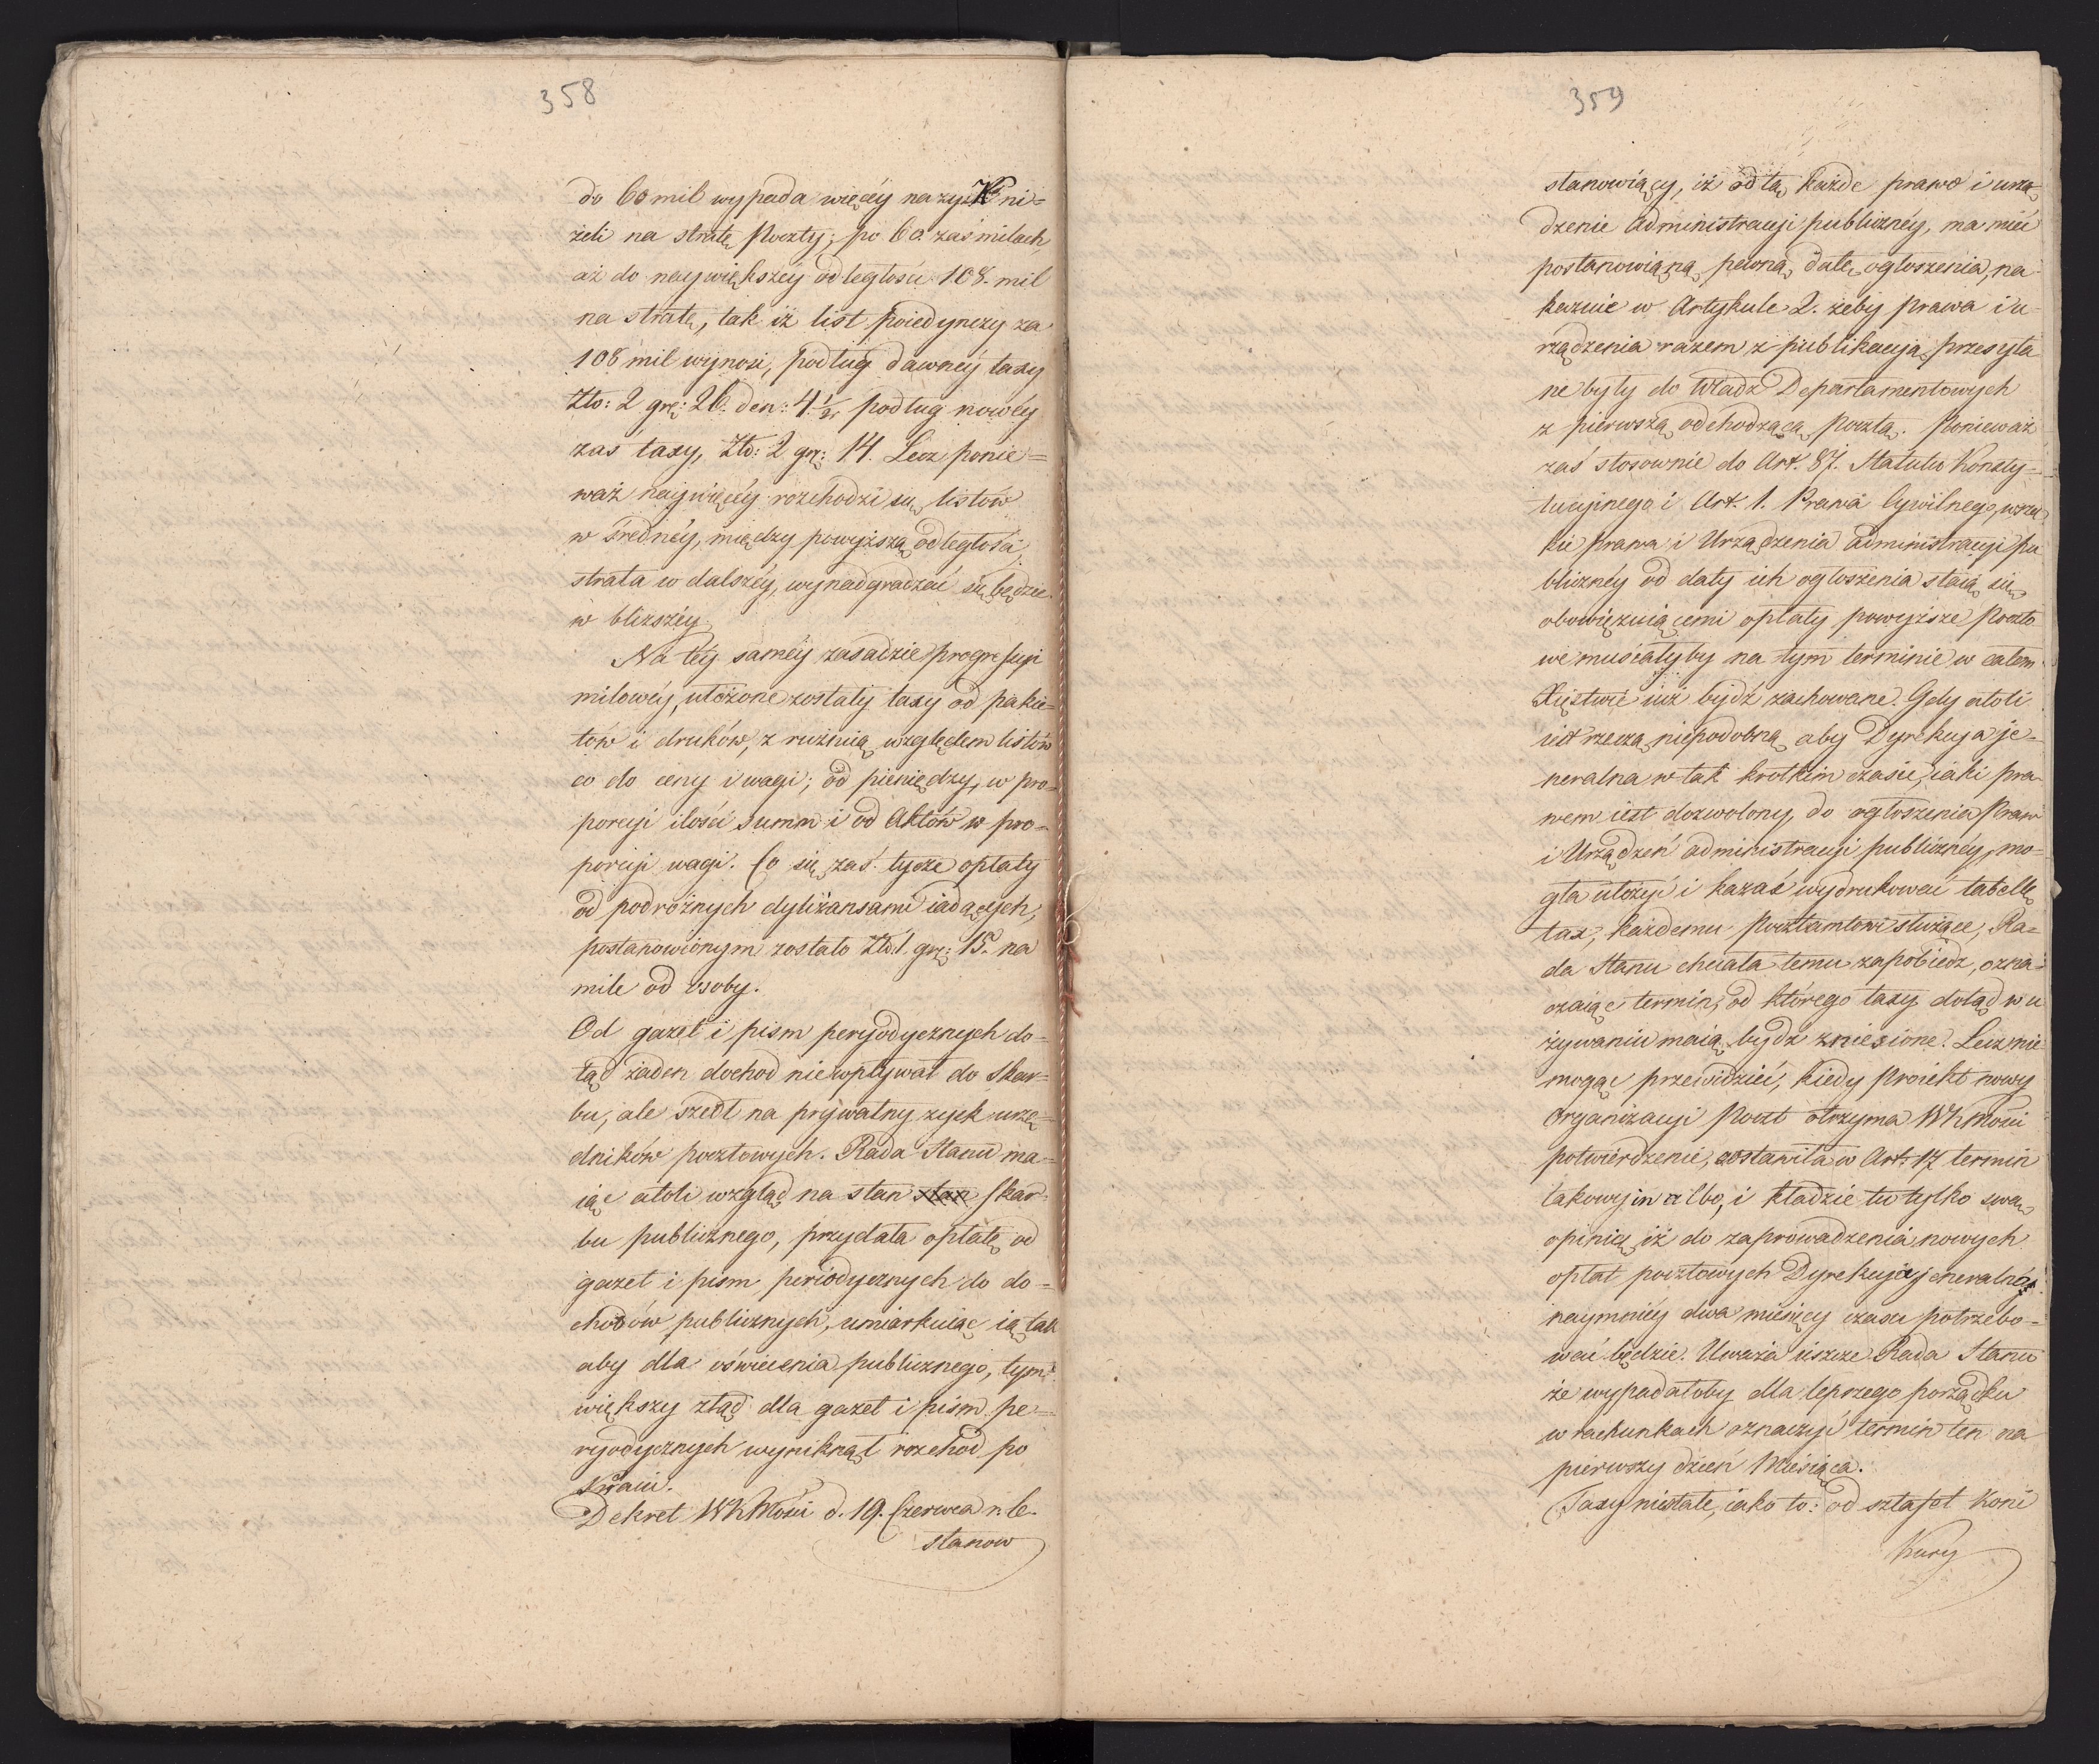 358
do 60 mil wypada więcéy na zysk ni=
żeli na stratę Poczty; po 60. zaś milach,
aż do naywiększéy odległości 108. mil
na stratę, tak iż list poiedynczy za
108 mil wynosi, podług dawnéy taxy
Zło: 2 gr: 26. den: 4½, podług nowéy
zaś taxy, Zło: 2 gr: 14. Lecz ponie=
waż naywięcéy rozchodzi się listów
w średniéy, między powyższą odległości,
strata w dalszéy, wynadgradzać się będzie
w bliższéy.
Na téy saméy zasadzie progressyi
milowéy, ułożone zostały taxy od pakie=
tów i druków, z rużnicą względem listów
co do ceny i wagi; od pieniędzy, w pro=
porcyi ilości summ i od Aktów w pro=
porcyi wagi. Co się zaś tycze opłaty
od podrożnych dyliżansami iadących,
postanowionym zostało Zło. 1. gr: 15. na
mile od osoby.
Od gazet i pism peryodycznych do=
tąd żaden dochod niewpływał do Skar=
bu, ale szedł na prywatny zysk urzę=
dników pocztowych. Rada Stanu ma=
iąc atoli wzgląd na stan stan skar=
bu publicznego, przydała opłatę od
gazet i pism periodycznych do do=
chodów publicznych, umiarkuiąc ią tak
aby dla oświecenia publicznego, tym
większy ztąd dla gazet i pism pe=
ryodycznych wyniknął rozchod po
Kraiu.
Dekret WKMości d. 19. Czerwca r. b.
stanow
359
stanowiący, iż odtąd każde prawo i urzą=
dzenie administracyi publicznéy, ma mieć
postanowioną pewną datę ogłoszenia, na=
kazuie w Artykule 2. żeby prawa i u=
rządzenia razem z publikacyą przesyła
ne były do Władz Departamentowych
z pierwszą odchodzącą pocztą. Ponieważ
zaś stosownie do Art. 87. Statutu Konsty=
tucyinego i Art. 1. Prawa Cywilnego, wszel
kie prawa i Urządzenia administracyi pu
blicznéy od daty ich ogłoszenia staią się
obowięzuiącemi opłaty powyższe poczto
we musiałyby na tym terminie w całem
Xięstwie iuż bydź zachowane. Gdy atoli
iest rzeczą niepodobną aby Dyrekcya je=
neralna w tak krotkim czasie, iaki pra
wem iest dozwolony, do ogłoszenia Praw
i Urządzeń administracyi publicznéy, mo=
gła ułożyć i kazać wydrukować tabellę
tax, każdemu Pocztamtowi służące, Ra=
da Stanu chciała temu zapobiedz, ozna=
czaiąc termin, od którego taxy dotąd w u
żywaniu maią bydź zniesione. Lecz nie
mogąc przewidzieć, kiedy Proiekt nowy
Organizacyi Poczt otrzyma WKMości
potwierdzenie, zostawiła w Art: 17 termin
takowy in albo, i kładzie tu tylko swą
opinię, iż do zaprowadzenia nowych
opłat pocztowych Dyrekcya jeneralna
naymniéy dwa miesięcy czasu potrzebo=
wać będzie. Uważa ieszcze Rada Stanu
że wypadałoby dla lepszego porządku
w rachunkach oznaczyć termin ten na
pierwszy dzień Miesiąca.
Taxy niestałe, iako to: od sztafet Koni
Kury